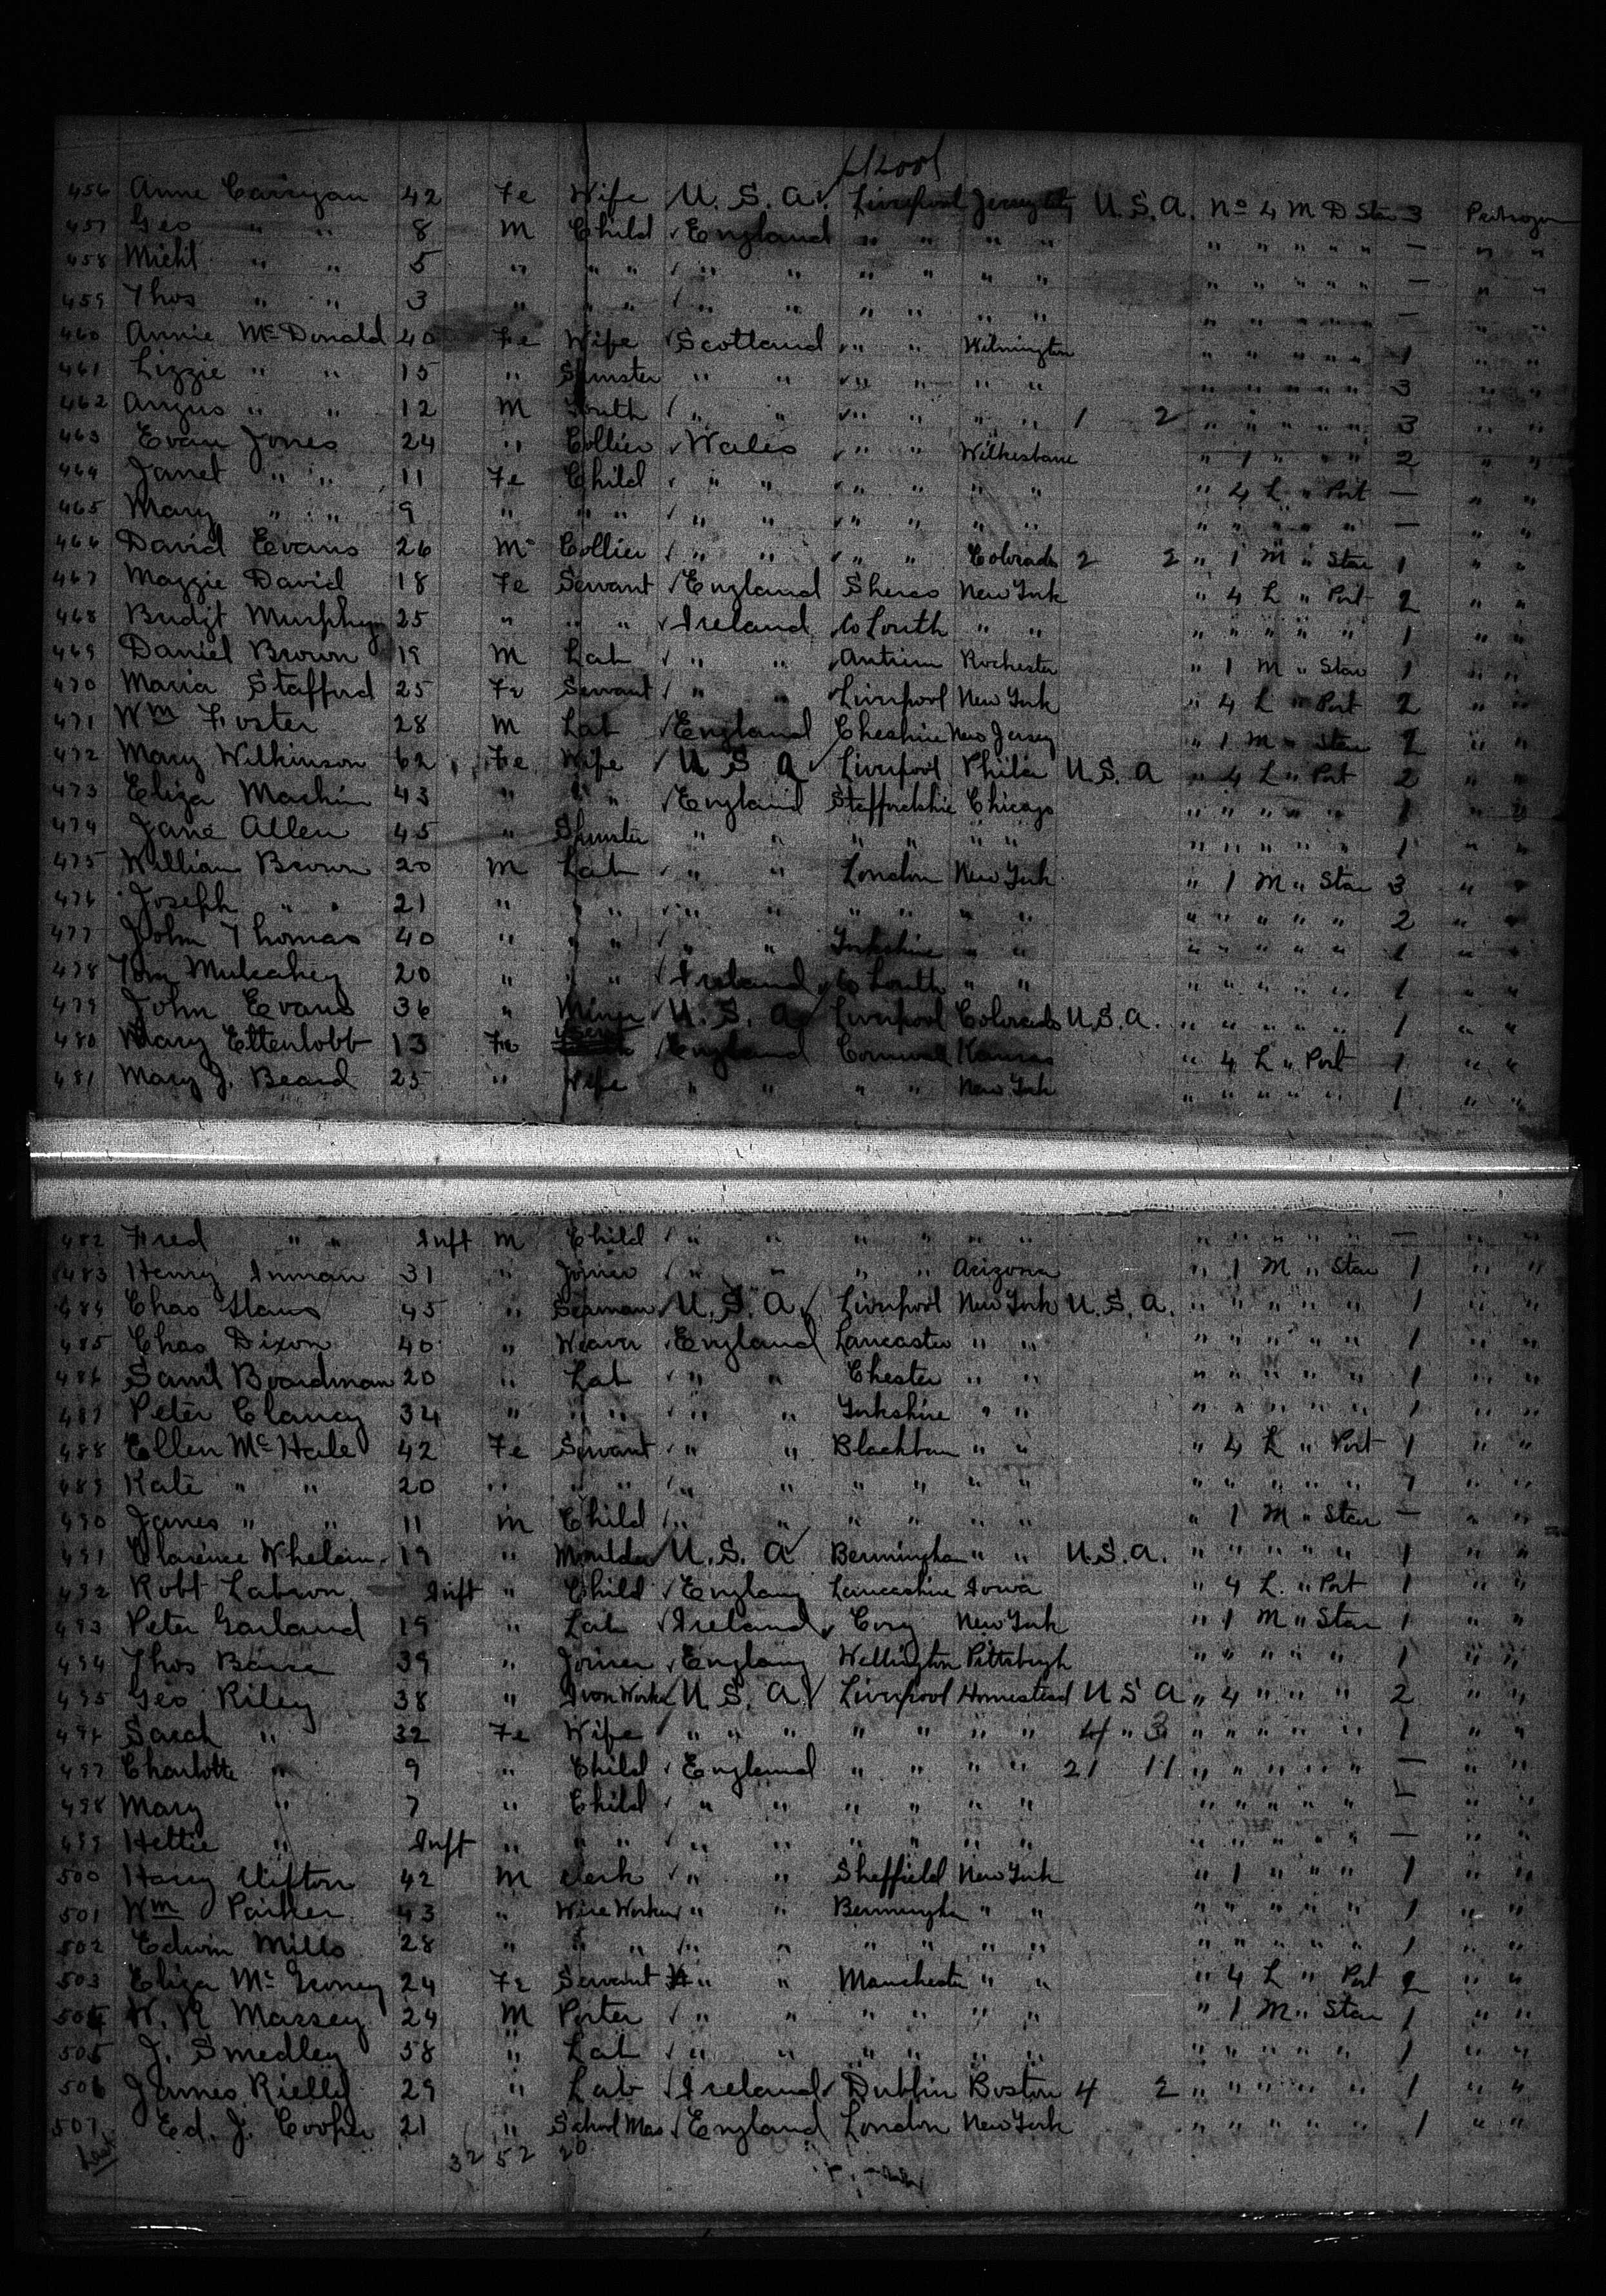 L'pool
456 Anne Carrigan 42 Fe Wife U. S. A. Liverpool Jersey City U.S.A. No 4 M D Star 3
457 Geo " " 8 M Child England " " " " " " " " " — " "
458 Michl " " 5 " " " " " " " " " " " " " " — " "
459 Thos " " 3 " " " " " " " " " " " " " " — " "
460 Annie McDonald 40 Fe Wife Scotland " " Wilmington " " " " " 1 " "
461 Lizzie " " 15 " Spinster " " " " " " " " " " " 3 " "
462 Angus " " 12 M Youth " " " " " " 1 2 " " " " " 3 " "
463 Evan Jones 24 " Collier Wales " " Wilkesbarre " 1 " " " 2 " "
464 Janet " " 11 Fe Child " " " " " " " 4 L " Port — " "
465 Mary " " 9 " " " " " " " " " " " " " " — " "
466 David Evans 26 M Collier " " " " Colorado 2 2 " 1 M " Star 1 " "
467 Maggie David 18 Fe Servant England New York " 4 L " Port 2 " "
468 Bridgt Murphy 25 " " " Ireland Co Louth " " " " " " " 1 " "
469 Daniel Brown 19 M Lab " " Antrim Rochester " 1 M " Star 1 " "
470 Maria Stafford 25 Fe Servant " " Liverpool New York " 4 L " Port 2 " "
471 Wm Foster 28 M Lab England Cheshire New Jersey " 1 M " Star 2 " "
472 Mary Wilkinson 62 Fe Wife U S A Liverpool Phila U.S. A " 4 L " Port 2 " "
473 Eliza Machin 43 " " " England Staffordshire Chicago " " " " " 1 " "
474 Jane Allen 45 " Spinster " " " " " " " " " " " 1 " "
475 William Brown 20 M Lab " " London New York " 1 M " Star 3 " "
476 Joseph " " 21 " " " " " " " " " " " " " " 2 " "
477 John Thomas 40 " " " " " Yorkshire " " " " " " " 1 " "
478 Tom Mulcahey 20 " " " Ireland Co Louth " " " " " " " 1 " "
479 John Evans 36 " Miner U. S. A. Liverpool Colorado U.S.A. " " " " " 1 " "
480 Mary Ettenlobb 13 Fe England Cornwall Kansas " 4 L " Port 1 " "
481 Mary J. Beard 25 " Wife " " " " New York " " " " " 1 " "
482 Fred " " Inft M Child " " " " " " " " " " " — " "
483 Henry Inman 31 " Joiner " " " " Arizona " 1 M " Star 1 " "
484 Chas 45 " Seaman U. S. A. Liverpool New York U. S. A. " " " " " 1 " "
485 Chas Dixon 40 " Weaver England Lancaster " " " " " " " 1 " "
486 Saml Boardman 20 " Lab " " Chester " " " " " " " 1 " "
487 Peter Clancy 34 " " " " " Yorkshire " " " " " " " 1 " "
488 Ellen McHale 42 Fe Servant " " Blackburn " " " 4 L " Port 1 " "
489 Kate " " 20 " " " " " " " " " " " " " " 1 " "
490 James " " 11 M Child " " " " " " " 1 M " Star — " "
491 Clarence Whelain 19 " Moulder U. S. A Bermingham " " U.S.A. " " " " " 1 " "
492 Robt Labron Inft " Child Englang Lancashire Iowa " 4 L. " Port 1 " "
493 Peter Garland 19 " Lab Ireland New York " 1 M " Star 1 " "
494 Thos 39 " Joiner Englang Wellington Pittsburgh " " " " " 1 " "
495 Geo Riley 38 " Iron Worker U. S. A. Liverpool Homestead U S A " 4 " " " 2 " "
496 Sarah " 32 Fe Wife " " " " " " " 4 " 3 " " " " " 1 " "
497 Charlotte " 9 " Child England " " " " 21 11 " " " " " — " "
498 Mary " 7 " Child " " " " " " " " " " " — " "
499 Hettie " Inft " " " " " " " " " " " " " " — " "
500 Harry Clifton 42 M clerk " " Sheffield New York " 1 " " " 1 " "
501 Wm Parker 43 " Wire Worker " " Bermingha " " " " " " " 1 " "
502 Edwin Mills 28 " " " " " " " " " " " " " " 1 " "
503 Eliza Mc 24 Fe Servant " " Manchester " " " 4 L " Port 2 " "
504 W. R Massey 24 M Porter " " " " " " " 1 M " Star 1 " "
505 J. Smedley 58 " Lab " " " " " " " " " " " 1 " "
506 James Rielly 29 " Lab Ireland Dublin Boston 4 2 " " " " " 1 " "
507 Ed. J. Cooper 21 " School Mas England London New York " " " " " 1 " "
32 52 20